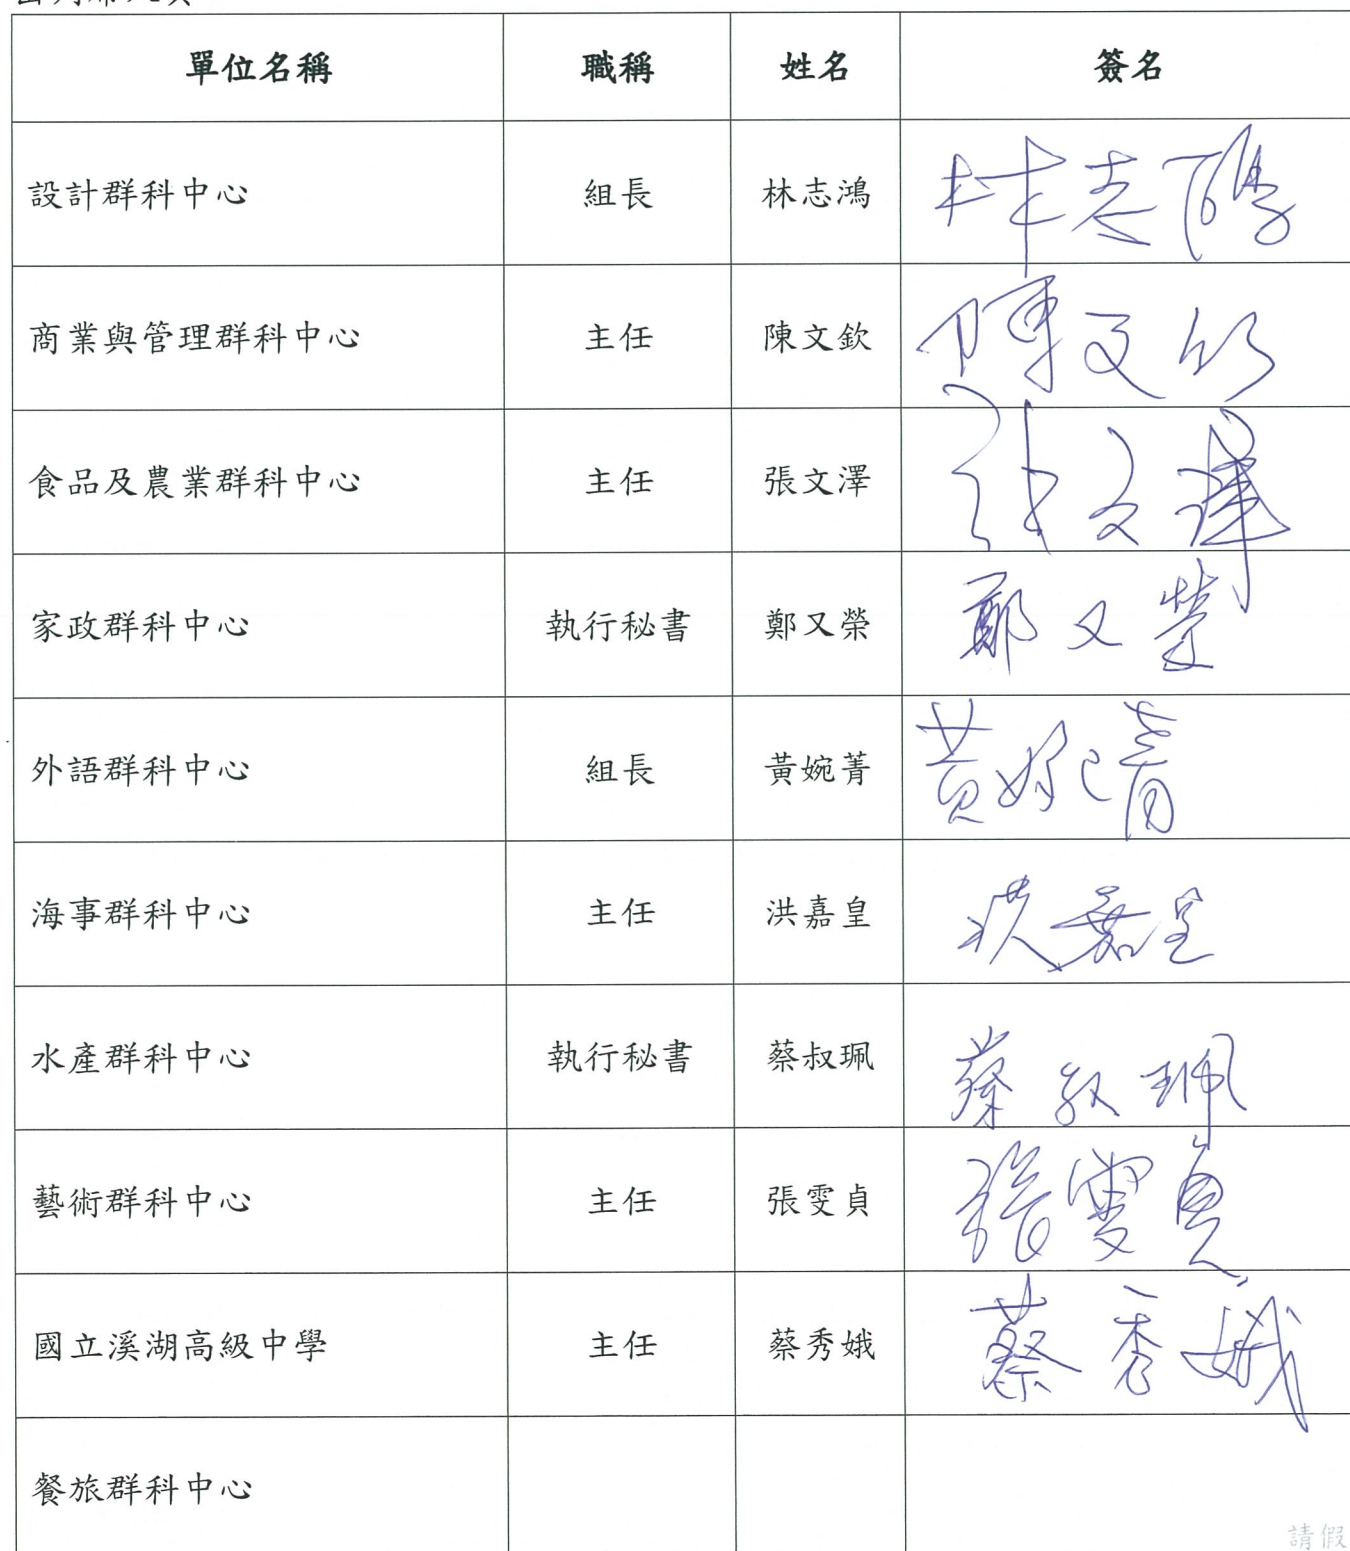 單位名稱 職稱 姓名 簽名
設計群科中心 組長 林志鴻 林志鴻
商業與管理群科中心 主任 陳文欽 陳文欽
食品及農業群科中心 主任 張文澤 張文澤
家政群科中心 執行秘書 鄭又榮 鄭又榮
外語群科中心 組長 黃婉菁 黃婉菁
海事群科中心 主任 洪嘉皇 洪嘉皇
水產群科中心 執行秘書 蔡叔珮 蔡叔珮
藝術群科中心 主任 張雯貞 張雯貞
國立溪湖高級中學 主任 蔡秀娥 蔡秀娥
餐旅群科中心
請假